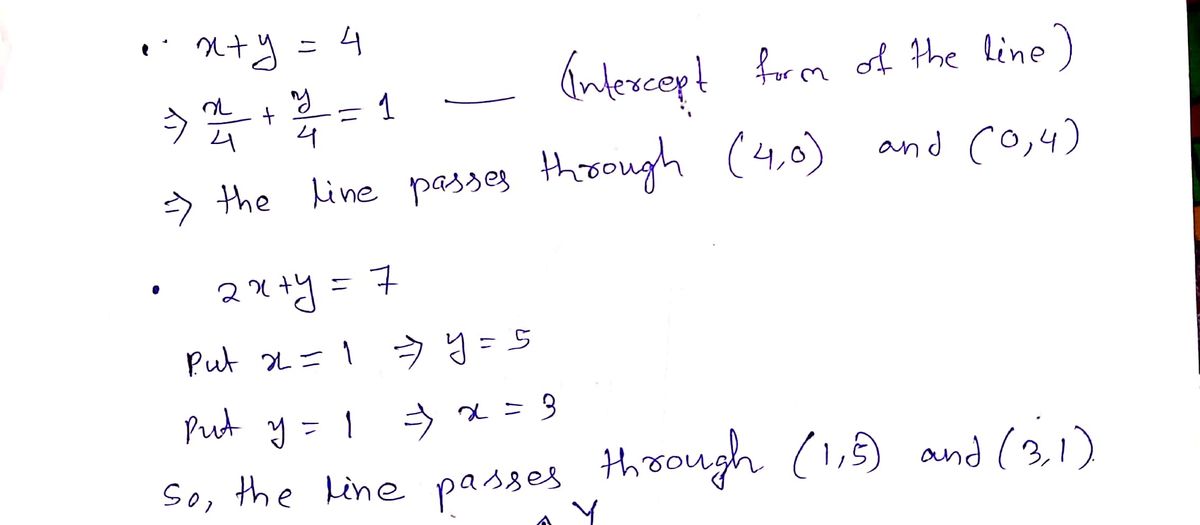 • x+y = 4
⇒ x/4 + y/4 = 1 — (Intercept form of the line)
⇒ the line passes through (4,0) and (0,4)
• 2x+y = 7
Put x = 1 ⇒ y = 5
Put y = 1 ⇒ x = 3
So, the line passes through (1,5) and (3,1).
Y